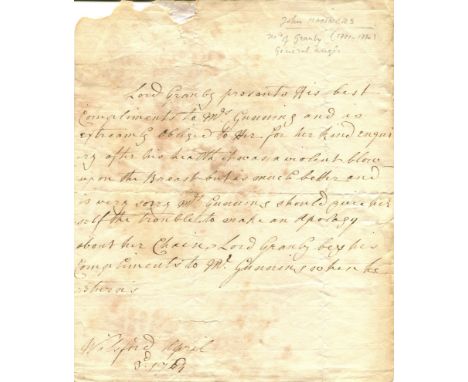 John Manners
Ms of Granby (1721-1770)
General
Lord Granby presents His best
Compliments to Mrs Gunning and is
extreamly Obliged to Her for her kind enqui
ry after his health it was a violent blow
upon the Breast but is much better and
is very sorry Mrs Gunning should give her
self the trouble to make an Apology
about her Chaise Lord Granby begs his
Compliments to Mr Gunning when he
returns
April
3d 176